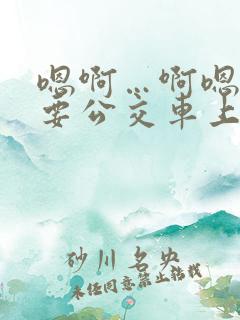 嗯啊…啊嗯
要公交车上
砂川名央
未经同意禁止转载